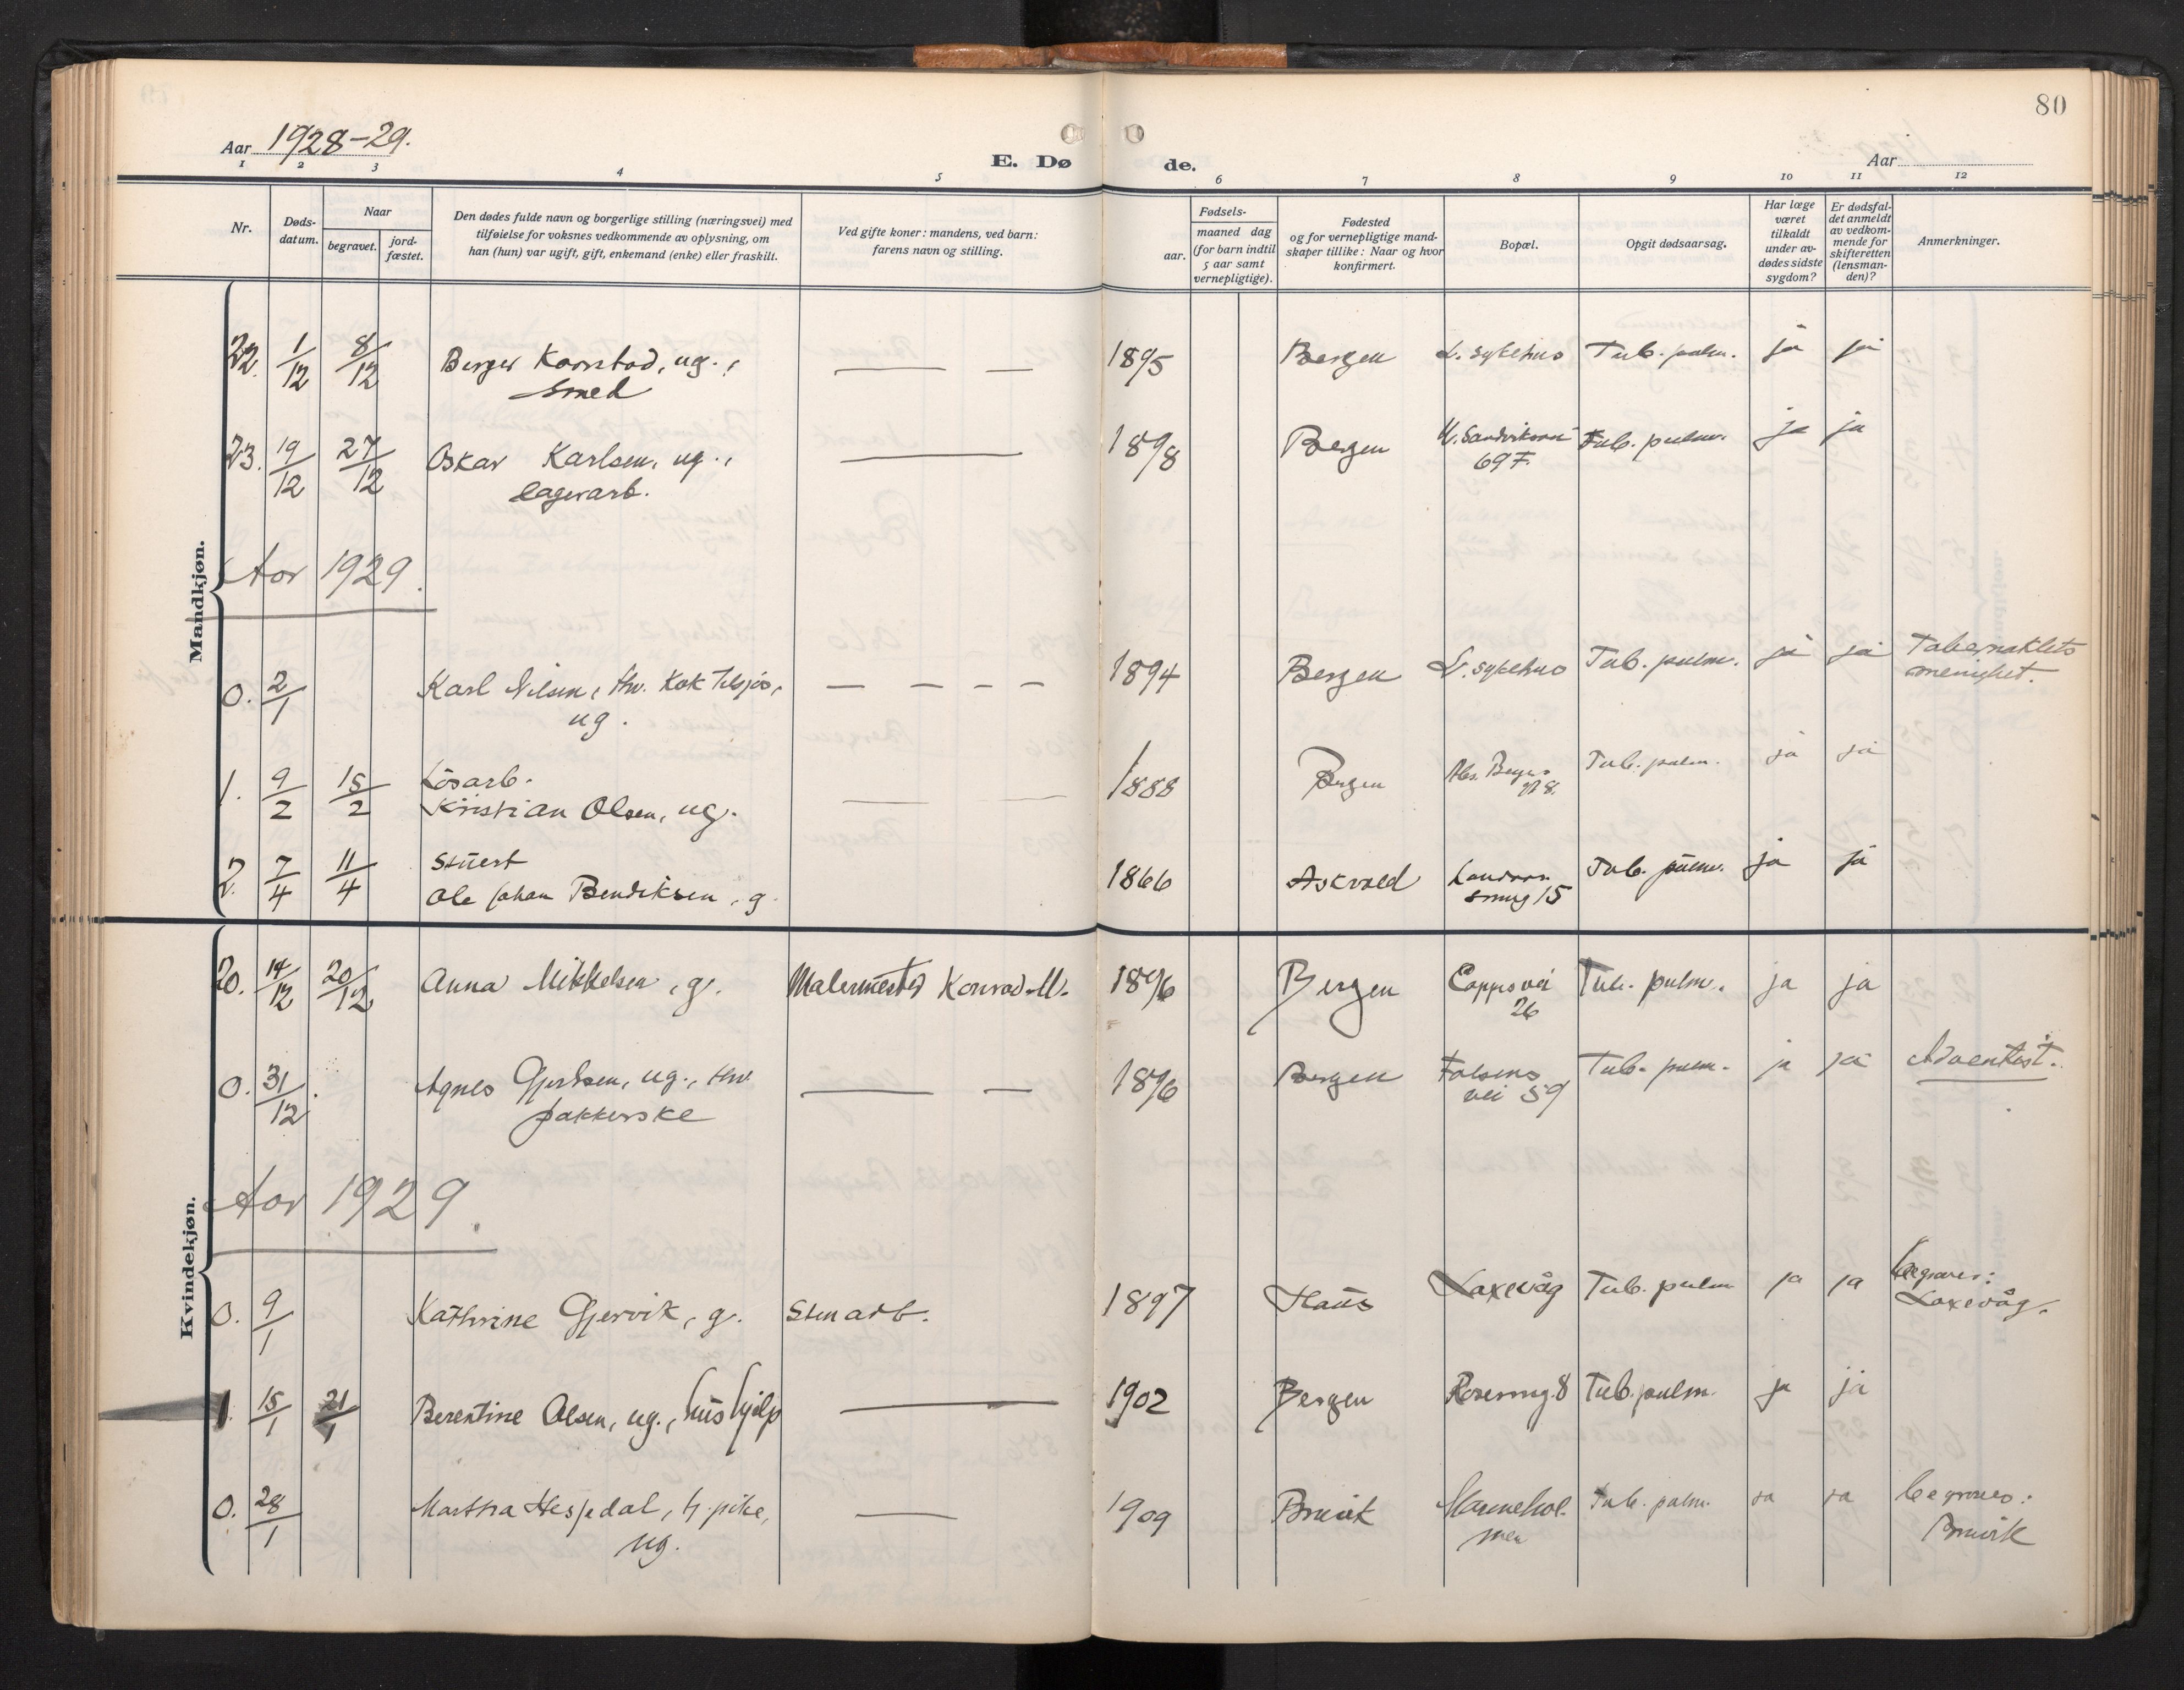 80
Aar 1928-29.
E. Dø de.
Aar
1 2 3 4 5 6 7 8 9 10 11 12
Nr.
Døds-
datum.
Naar
begravet.
jord-
fæstet.
Den dødes fulde navn og borgerlige stilling (næringsvei) med
tilføielse for voksnes vedkommende av oplysning, om
han (hun) var ugift, gift, enkemand (enke) eller fraskilt.
Ved gifte koner: mandens, ved barn:
farens navn og stilling.
Fødsels-
aar.
maaned dag
(for barn indtil
5 aar samt
vernepligtige).
Fødested
og for vernepligtige mand-
skaper tillike: Naar og hvor
konfirmert.
Bopæl.
Opgit dødsaarsag.
Har læge
været
tilkaldt
under av-
dødes sidste
sygdom?
Er dødsfal-
det anmeldt
av vedkom-
mende for
skifteretten
(lensman-
den)?
Anmerkninger.
Mandkjøn.
22. 1/12 8/12 Berger Korstad, ug., 1895 Bergen L. sykehus Tub. pulm. ja ja
smed
23. 19/12 27/12 Oskar Karlsen, ug., 1898 Bergen N. Sandviksvei Tub. pulm. ja ja
lagerarb. 69 F.
Aar 1929.
0. 2/1 Karl Nilsen, fhv. kok tilsjøs, 1894 Bergen L. sykehus Tub. pulm. ja ja Tabernaklets
ug. menighet.
Løsarb.
1. 9/2 15/2 Kristian Olsen, ug. 1888 Bergen Tub. pulm. ja ja
Stuert
2. 7/4 11/4 Ole Johan Bendiksen, g. 1866 Askvold Tub. pulm. ja ja
smug 15
Kvindekjøn.
20. 14/12 20/12 Anna Mikkelsen, g. Malermester Konrad M. 1896 Bergen Cappsvei Tub. pulm. ja ja
26
0. 31/12. Agnes Gjertsen, ug., fhv. 1896 Bergen Falsens Tub. pulm. ja ja Adventist.
pakkerske vei 59
Aar 1929.
0. 9/1 Kathrine Gjervik, g. Stenarb. 1897 Haus Laxevåg Tub. pulm ja ja begraves:
Laxevåg.
1. 15/1 21/1 Berentine Olsen, ug., hushjelp 1902 Bergen Rosesmug. 8 Tub. pulm. ja ja
0. 28/1 Martha Hesjedal, h. pike, 1909 Bruvik Marinehol- Tub. pulm. ja ja begraves:
ug. men Bruvik